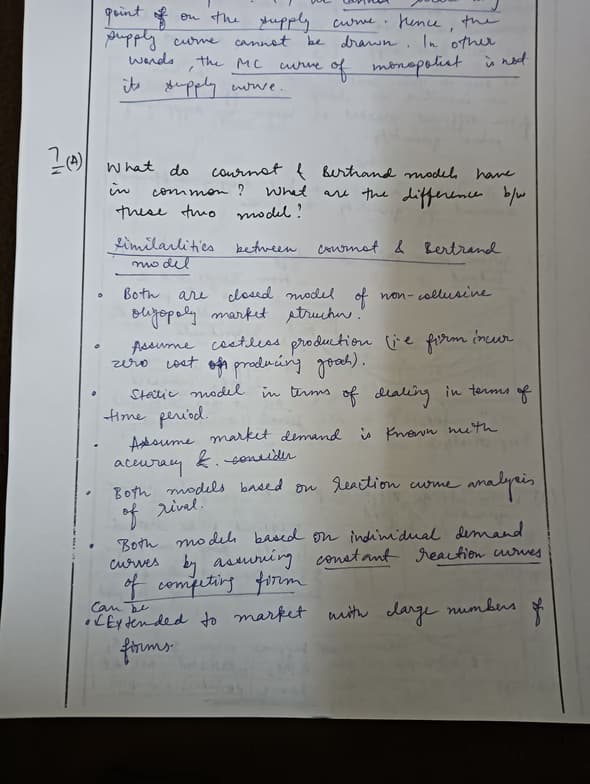 point of on the supply curve. Hence, the
supply curve cannot be drawn. In other
words, the MC curve of monopolist is not
its supply curve.
7 (A)
What do cournot & Bertrand models have
in common? What are the difference b/w
these two model?
Similarlities between cournot & Bertrand
model
• Both are closed model of non-collusive
oligopoly market structure.
• Assume costless production (i.e firm incur
zero cost of producing goods).
• Static model in terms of dealing in terms of
time period.
• Assume market demand is known with
accuracy &. consider
• Both models based on reaction curve analysis
of rival.
• Both models based on individual demand
curves by assuming constant reaction curves
of competing firm
Can be
• Extended to market with large numbers of
firms.